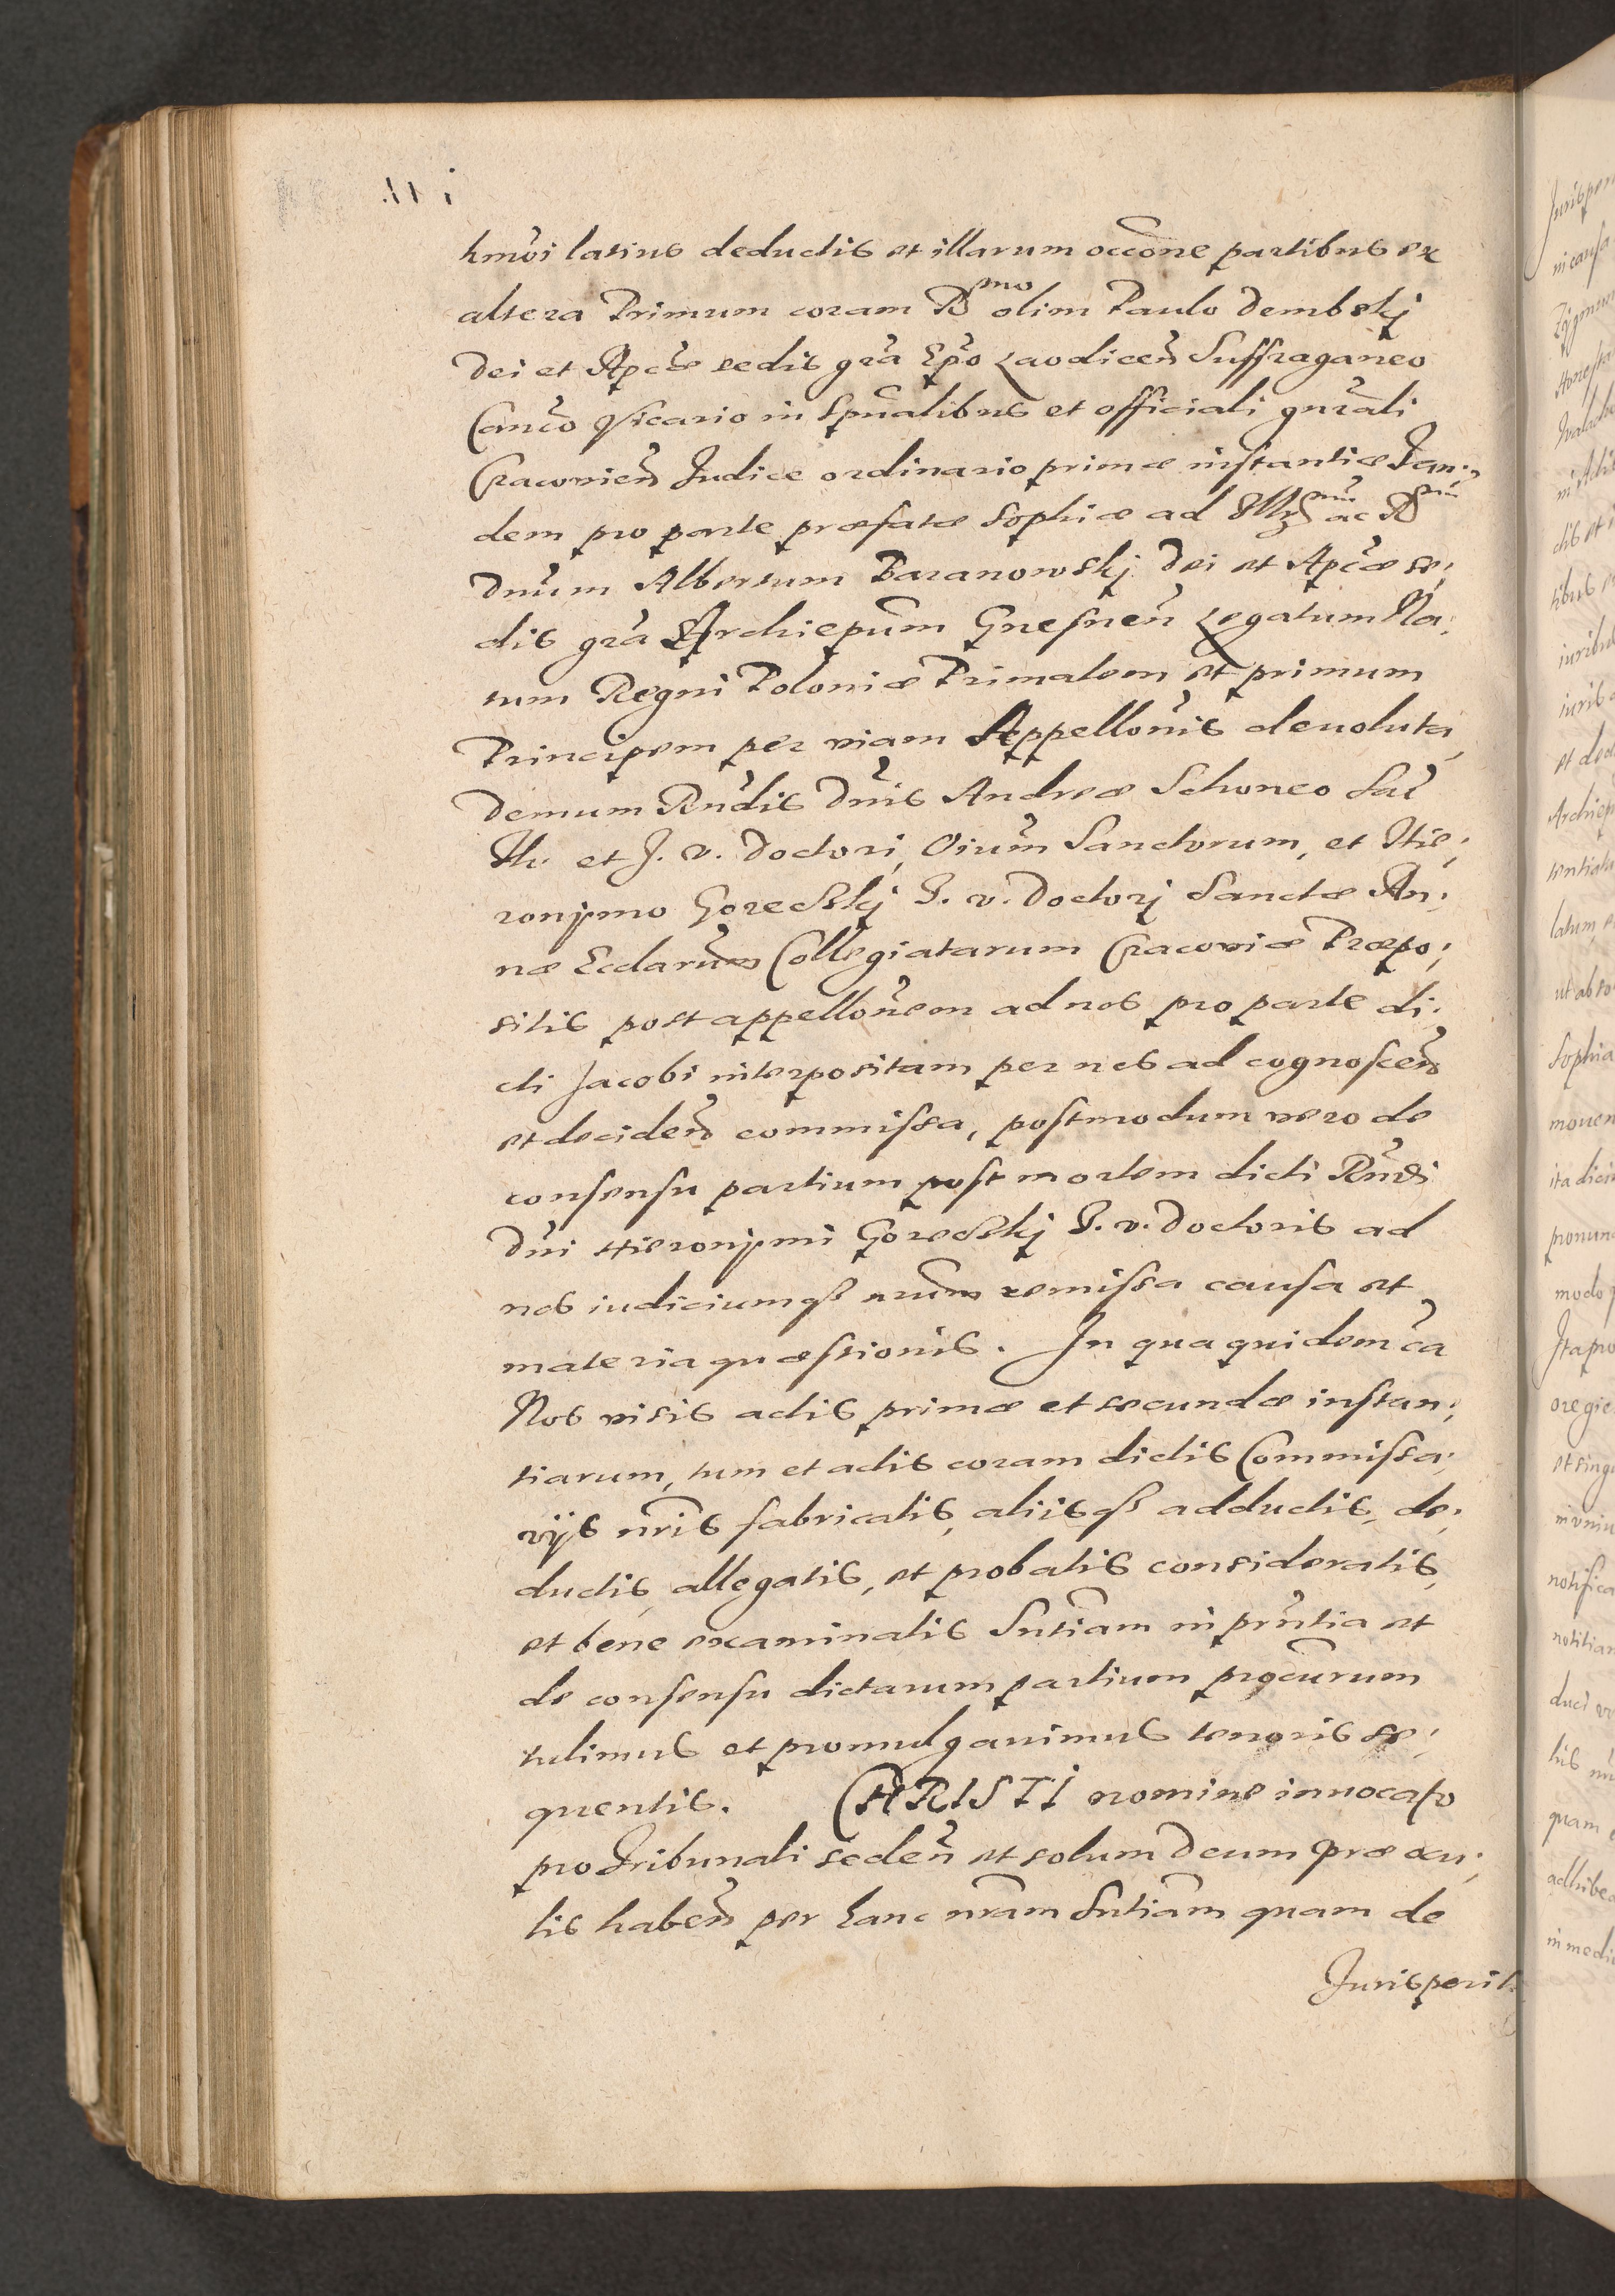 hmoi latius deductis et illarum occone partibus ex
altera Primum coram R<sup>mo</sup> olim Paulo Dembskj
Dei et Apcae sedis gra Epo Laodicen Suffraganeo
Canco Vicario in Spualibus et officiali gnrali
Cracovien Judice ordinario primae instantiae Tan:
dem pro parte praefatae Sophiae ad Illr<sup>mu</sup> ac R<sup>mu</sup>
Dnum Albertum Baranowskj Dei et Apcae se:
dis gra Archiepum Gnesnen Legatum Na:
tum Regni Poloniae Primatem et primum
Principem per viam Appellonis devoluta,
demum Rndis Dnis Andreae Schoneo Sac
Th: et J. v. Doctori, Oium Sanctorum, et Hie:
ronymo Goreckj J. v. Doctorj Sanctae An:
nae Ecclarum Collegiatarum Cracoviae Praepo:
sitis post appellonem ad nos pro parte di:
cti Jacobi interpositam per nos ad cognoscen
et deciden commissa, postmodum vero de
consensu partium post mortem dicti Rndi
Dni Hieronymi Goreckj J. v. Doctoris ad
nos iudiciumq nrum remissa causa et
materia quaestionis. In qua quidem ca
Nos visis actis primae et secundae instan:
tiarum, tum et actis coram dictis Commissa:
rijs nris fabricatis, aliisq adductis, de:
ductis, allegatis, et probatis consideratis,
et bene examinatis Sntiam in prntia et
de consensu dictarum partium procurum
tulimus et promulgavimus tenoris se:
quentis. CHRISTI nomine invocato
pro tribunali seden et solum Deum prae ocu:
lis haben per hanc nram Sntiam quam de
Jurisperit